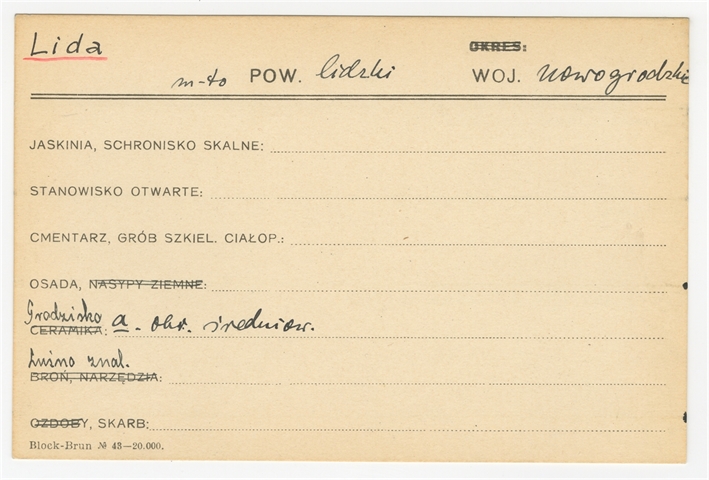 Lida
OKRES:
m-to POW. lidzki WOJ. nowogrodzkie
JASKINIA, SCHRONISKO SKALNE:
STANOWISKO OTWARTE:
CMENTARZ, GRÓB SZKIEL. CIAŁOP.:
OSADA, NASYPY ZIEMNE:
Grodzisko
CERAMIKA: a. okr. średniow.
Luźno znal.
BROŃ, NARZĘDZIA:
OZDOBY, SKARB:
Block-Brun № 43—20.000.